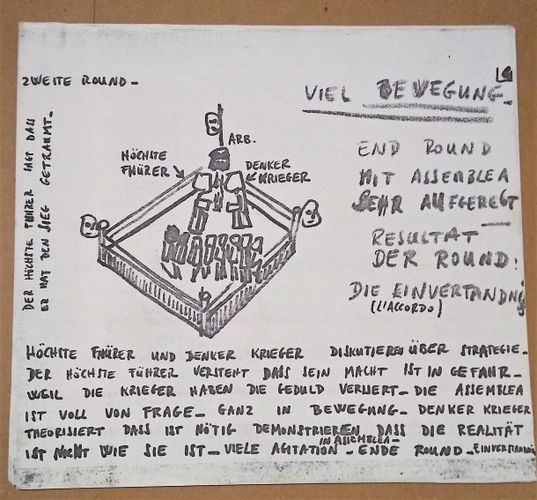 ZWEITE ROUND_
VIEL BEWEGUNG_
DER HÖCHSTE FÜHRER SAGT DASS
ER HAT DEN SIEG GETRÄUMT_
ARB.
HÖCHSTE
FHÜRER
DENKER
KRIEGER
END ROUND
MIT ASSEMBLEA
SEHR AUFGEREGT_
RESULTAT
DER ROUND:
DIE EINVERTANDNIS
(L'ACCORDO)
HÖCHSTE FHÜRER UND DENKER KRIEGER DISKUTIEREN ÜBER STRATEGIE_
DER HÖCHSTE FÜHRER VERSTEHT DASS SEIN MACHT IST IN GEFAHR_
WEIL DIE KRIEGER HABEN DIE GEDULD VERLIERT_ DIE ASSEMBLEA
IST VOLL VON FRAGE_ GANZ IN BEWEGUNG_ DENKER KRIEGER
THEORISIERT DASS IST NÖTIG DEMONSTRIEREN DASS DIE REALITÄT
IST NICHT WIE SIE IST_ VIELE AGITATION IN ASSEMBLEA_ ENDE ROUND_